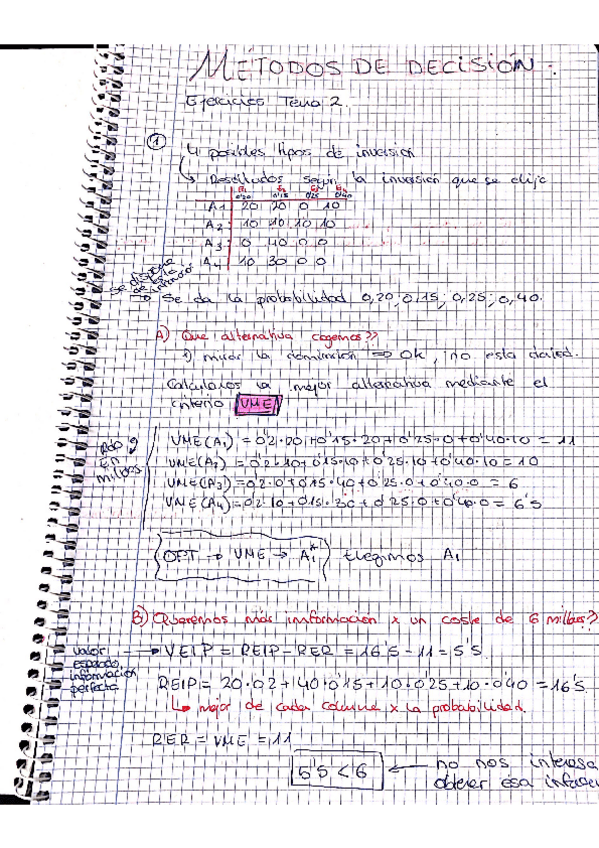 MÉTODOS DE DECISIÓN.
Ejercicios Tema 2.
① 4 posibles tipos de inversión
↳ Resultados según la inversión que se elija
E1 E2 E3 E4
0'20 0'15 0'25 0'40
A1 20 20 0 10
A2 10 10 10 10
A3 0 40 0 0
A4 10 30 0 0
se dispone de esta información
→ Se da la probabilidad 0,20; 0,15; 0,25; 0,40.
A) Que alternativa cogemos??
1) mirar la dominación ⇒ Ok, no esta
Calculamos la mejor alternativa mediante el
criterio VME
En miles
VME(A1) = 0'2·20+0'15·20+0'25·0+0'40·10 = 11
VME(A2) = 0'2·10+0'15·10+0'25·10+0'40·10 = 10
VME(A3) = 0'2·0+0'15·40+0'25·0+0'40·0 = 6
VME(A4) = 0'2·10+0'15·30+0'25·0+0'40·0 = 6'5
OPT → VME → A1* } Elegimos A1
B) Queremos más información x un coste de 6 miles??
valor esperado información perfecta
→ VEIP = REIP-RER = 16'5 - 11 = 5'5
REIP = 20·0'2+40·0'15+10·0'25+10·0'40 = 16'5
↳ mejor de cada columna x la probabilidad.
RER = VME = 11
5'5 < 6 ← no nos interesa
obtener esa